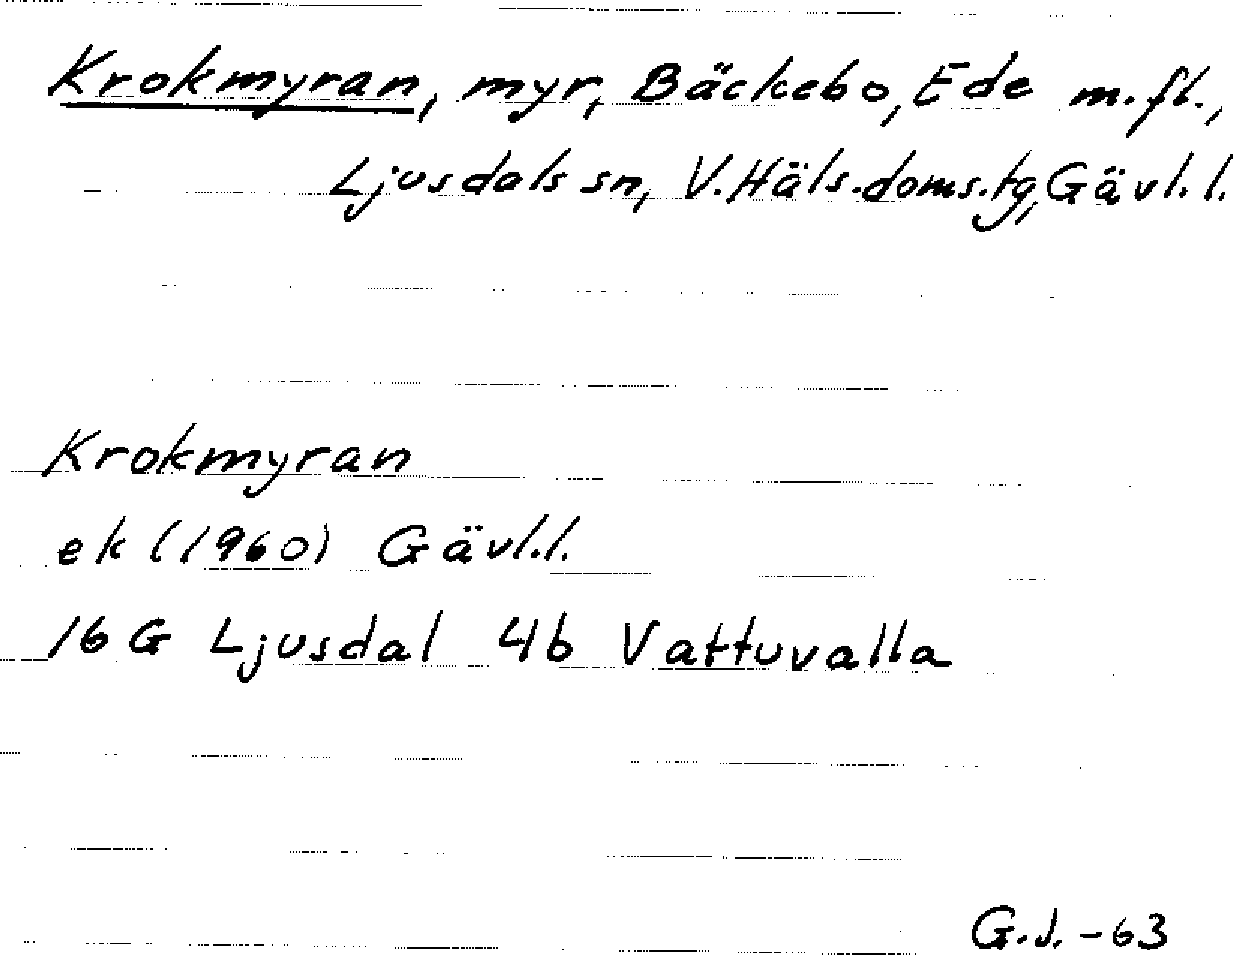 Krokmyran, myr, Bäckebo, Ede m.fl.,
Ljusdals sn, V.Häls.doms.tg, Gävl.l.
Krokmyran
ek (1960) Gävl.l.
16 G Ljusdal 4b Vattuvalla
G.J. -63